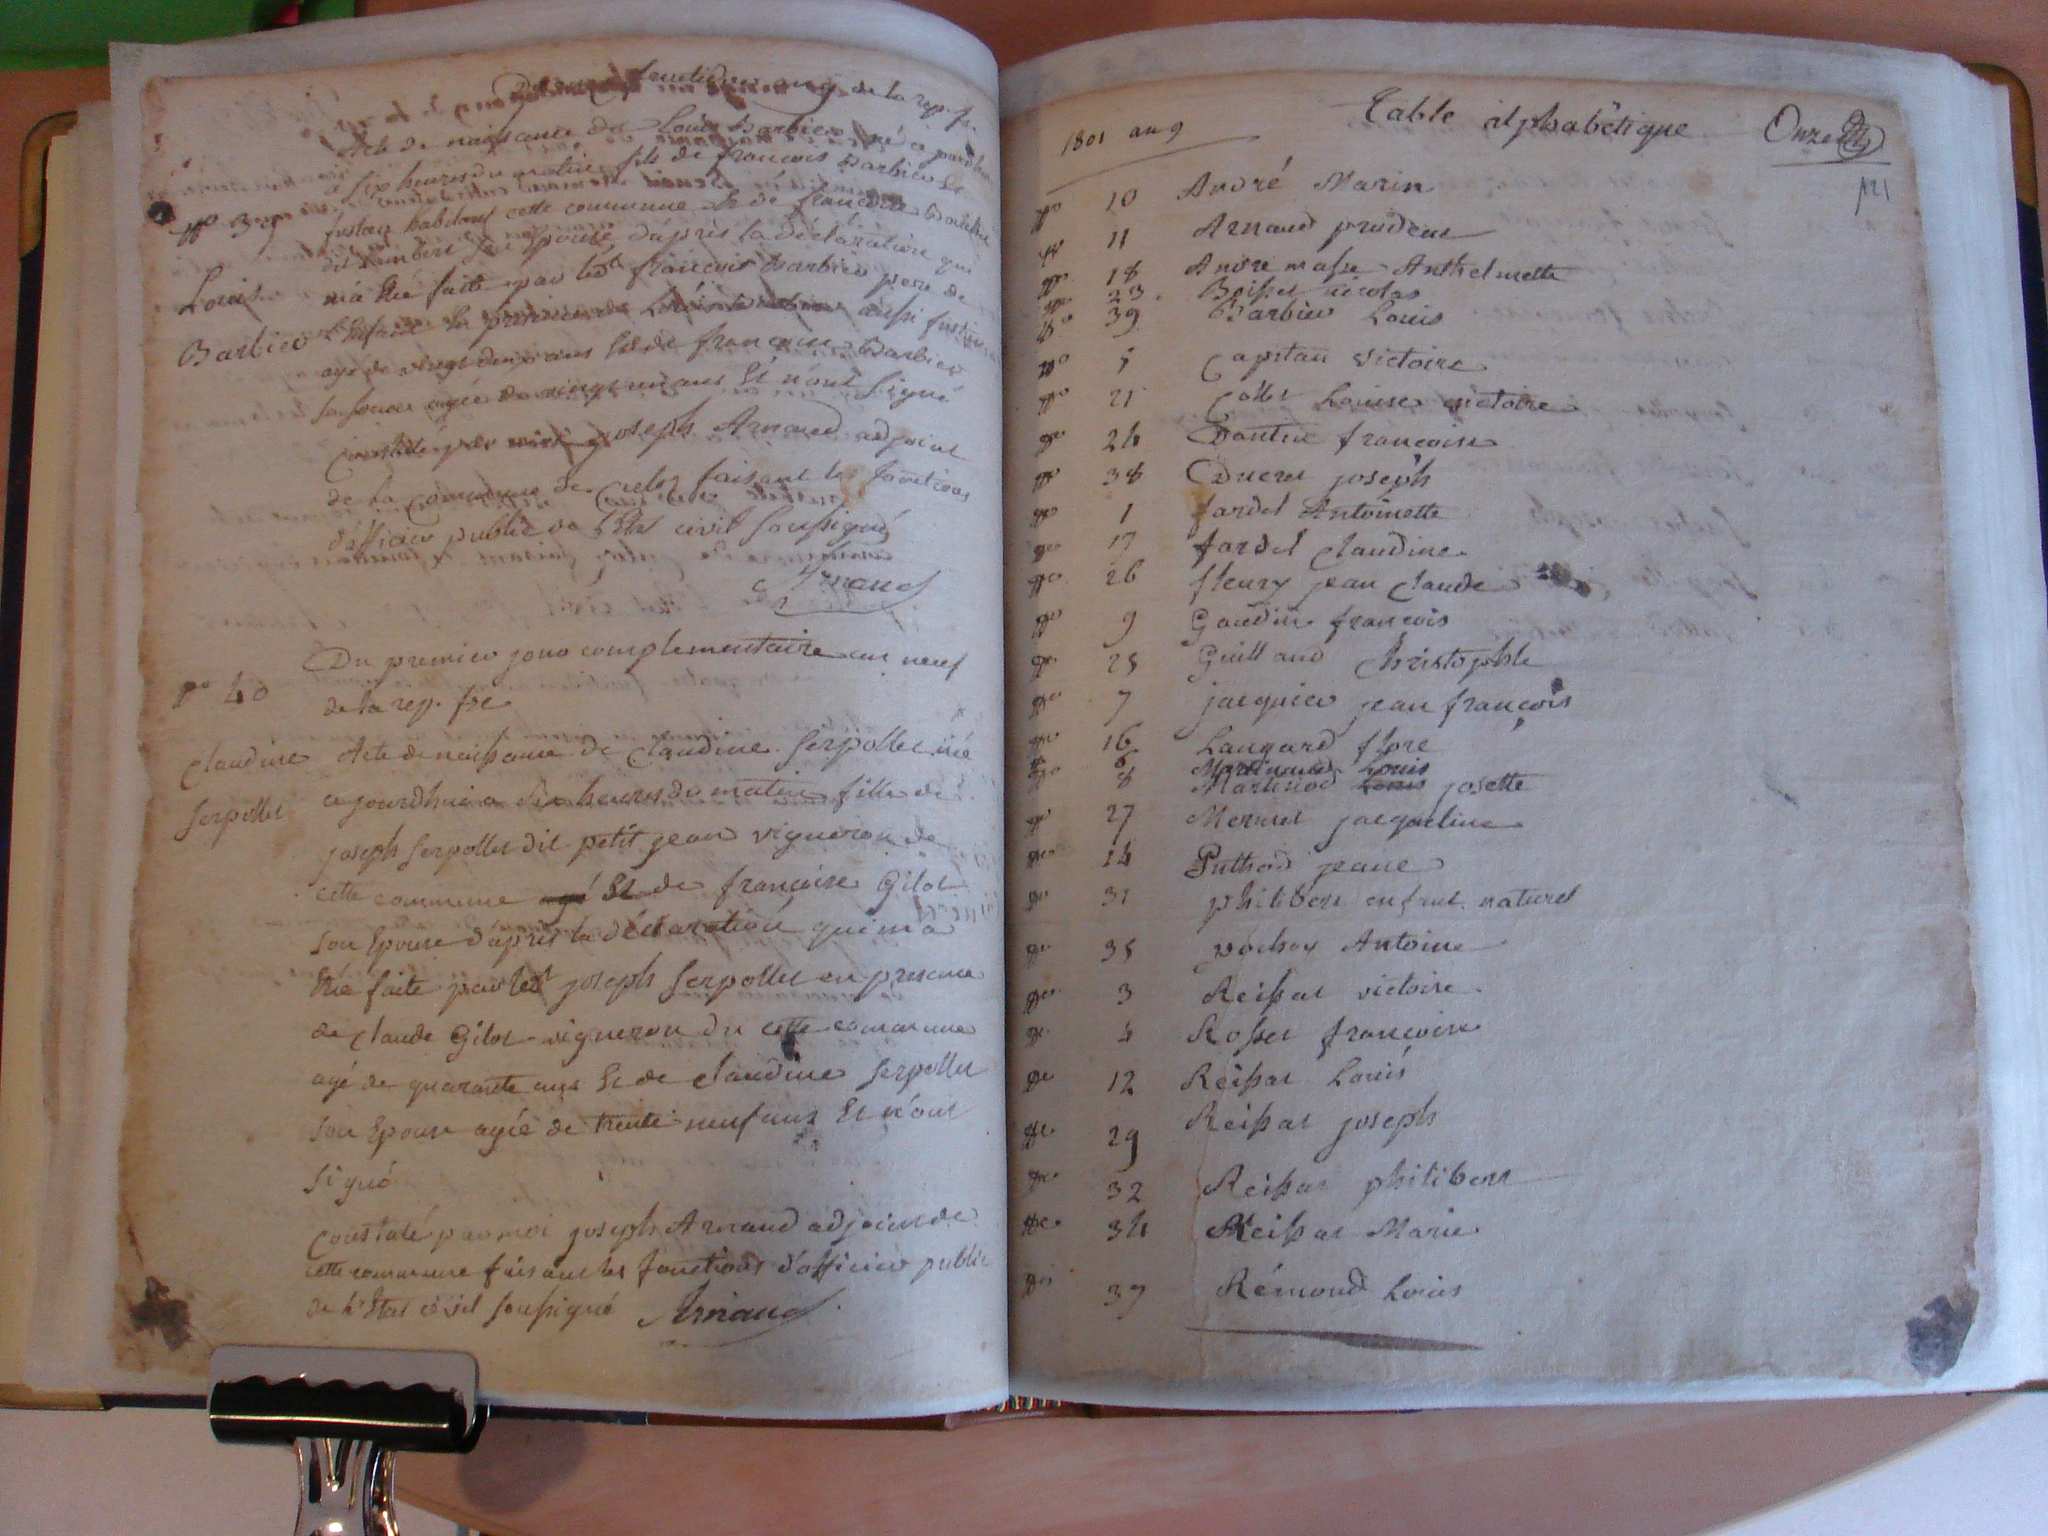 fructidor an 9 de la rep. fr.
Acte de naissance de Louis Barbier né ce jourdhui
a six heures du matin fils de francois Barbier
No 39
habitant cette commune et de francoise
son epouse d'après la déclaration qui
Louis
m'a été faite par ledt francois Barbier pere de
Barbier
l'enfant en presence de aussi
agé de vingt deux ans et de francoise Barbier
agée de vingt un ans Et n'ont signé
Constaté par moi joseph Arnaud adjoint
de la commune de Culoz faisant les fonctions
d'officier public de l'Etat civil soussigné
Arnaud
Du premier jour complementaire an neuf
No 40
de la rep. fse
Claudine
Acte de naissance de Claudine Serpollet née
Serpollet
ce jourdhui a six heures du matin fille de
joseph Serpollet dit petit jean vigneron de
cette commune Et de francoise Gilot
son Epouse d'après la déclaration qui m'a
été faite par ledt joseph Serpollet en presence
de Claude Gilot vigneron du cette commune
agé de quarante ans Et de Claudine Serpollet
son Epouse agée de trente neuf ans Et n'ont
signé
Constaté par moi joseph Arnaud adjoint de
cette commune faisant les fonctions d'officier public
de l'Etat civil soussigné Arnaud
1801 an 9 Table alphabétique Onze
121
No 10 André Marin
No 11 Arnaud prudent
No 18 Andre masse Anthelmette
No 23 Boisset nicolas
No 39 Barbier Louis
No 5 Capitan victoire
No 21 Collet Louise victoire
No 24 Dantin francoise
No 38 Ducret joseph
No 1 fardel Antoinette
No 17 fardel Claudine
No 26 fleury jean Claude
No 9 Gaudin francois
No 25 Guilland Christophle
No 7 jacquier jean francois
No 16 Laugard flore
No 6 Martinand Louis
No 8 Martinod Louis josette
No 27 Mermet jacqueline
No 14 Puthod jeane
No 31 philibert enfant naturel
No 35 pochoy Antoine
No 3 Reissat victoire
No 4 Rosset francoise
No 12 Reissat Louis
No 29 Reissat joseph
No 32 Reissat philibert
No 34 Reissat Marie
No 39 Rémond Louis